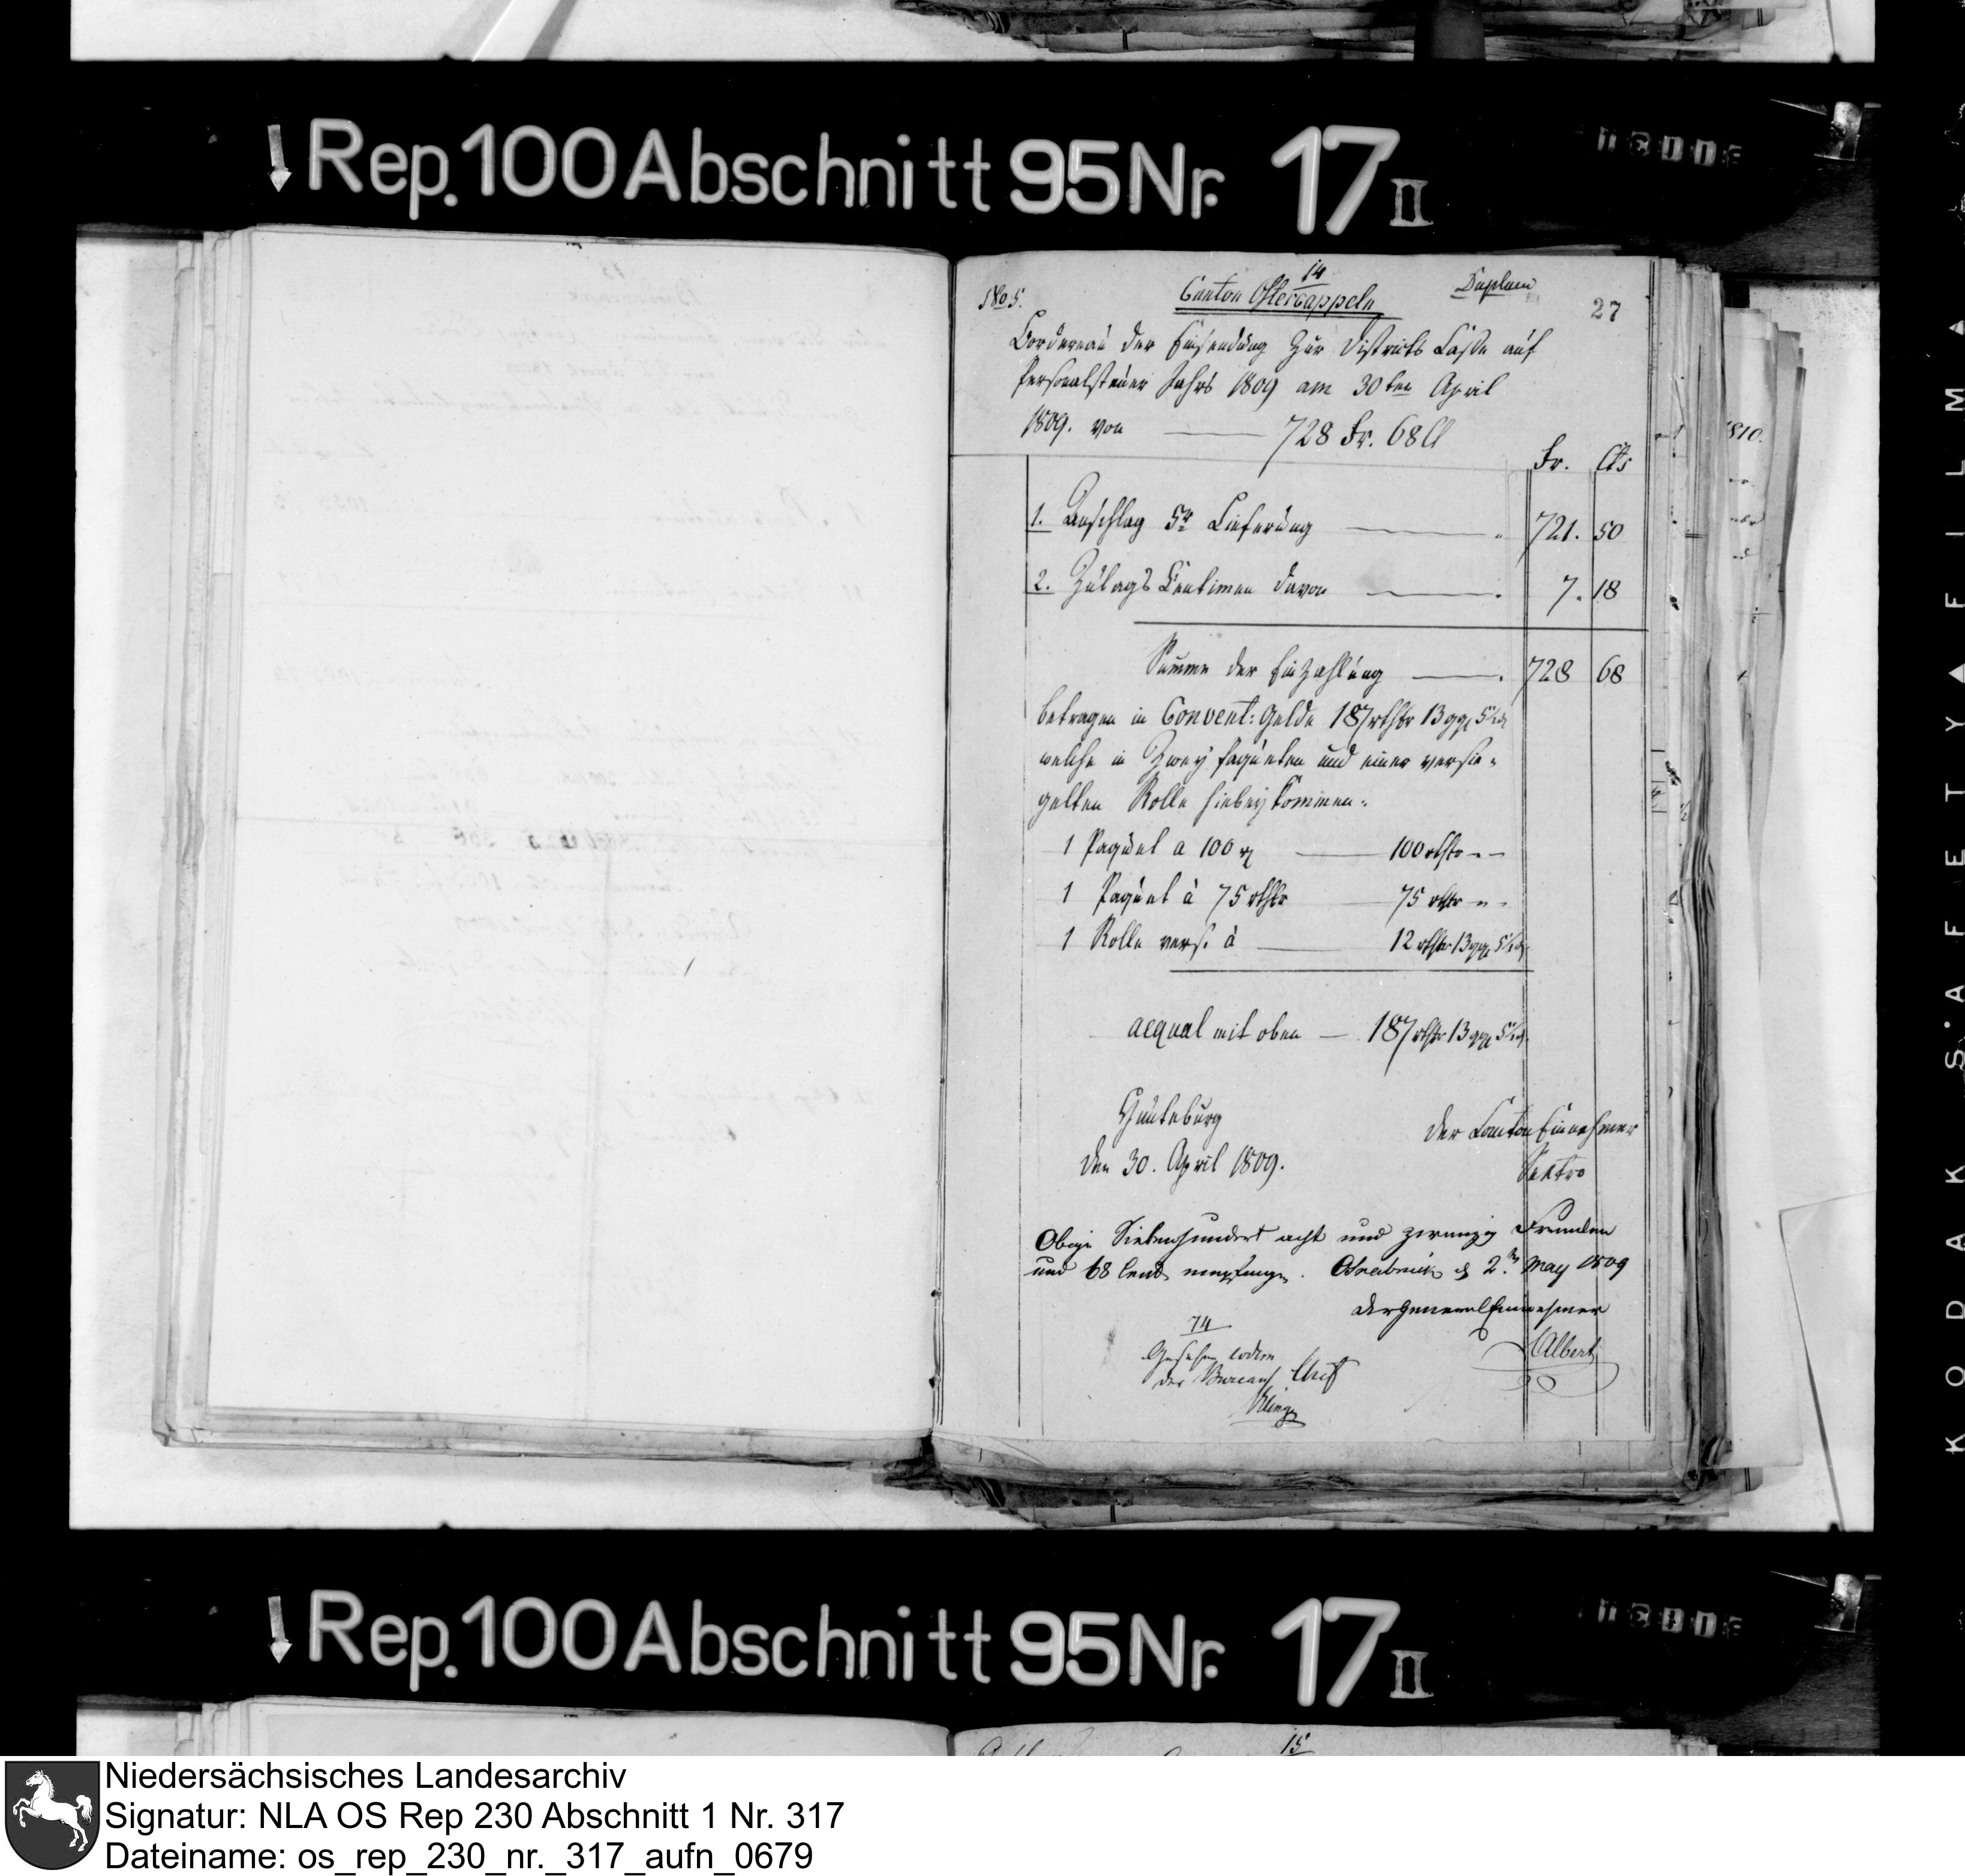 Rep. 100 Abschnitt 95 Nr. 17 II
14
Canton Ostercappeln
Duplum
27
Bordereau der Einsendung zur Districts Casse auf
Personalsteuer Jahrs 1809 am 30ten April
1809. von — 728 Fr. 68
Fr. Cts
1. Anschlag 5r Lieferung — 721. 50
2. Zulags Centimen davon — 7. 18
Summe der Einzahlung — 728 68
betragen in Convent: Gelde 187 rthlr 13 ggl
welche in Zwey Paqueten und einer versie-
gelten Rolle hiebey kommen.
1 Paquet a 100 — 100 rthlr - -
1 Paquet à 75 rthlr — 75 rthlr - -
1 Rolle vers. à — 12 rthlr 13 ggl
aequal mit oben — 187 rthlr 13 ggl
der Canton Einnehmer
den 30. April 1809.
Obige Siebenhundert acht und zwanzig Franken
und 68 Cent empfangen. Osnabrück d 2n May 1809
der General Einnehmer
Albert
74
Gesehen eodem
der Bureau Chef
1810.
Rep. 100 Abschnitt 95 Nr. 17 II
15
KODAK SAFETY FILM
Niedersächsisches Landesarchiv
Signatur: NLA OS Rep 230 Abschnitt 1 Nr. 317
Dateiname: os_rep_230_nr._317_aufn_0679